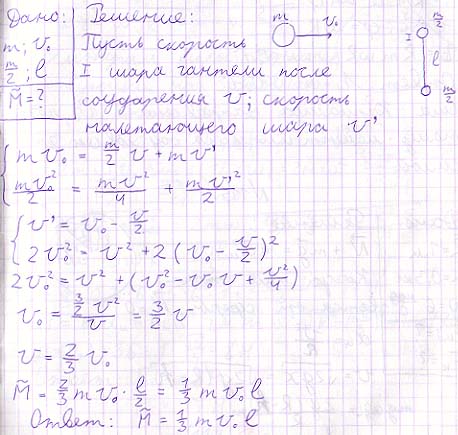 Дано: Решение:
m; v₀ Пусть скорость m v₀ m/2
m/2; l I шара гантели после I l
M̃=? соударения v; скорость m/2
налетающего шара v'
{ mv₀ = m/2 v + mv'
mv₀²/2 = mv²/4 + mv'²/2
{ v' = v₀ - v/2
2v₀² = v² + 2(v₀ - v/2)²
2v₀² = v² + (v₀² - v₀v + v²/4)
v₀ = 3/2 v²/v = 3/2 v
v = 2/3 v₀
M̃ = 2/3 mv₀ · l/2 = 1/3 mv₀l
Ответ: M̃ = 1/3 mv₀l